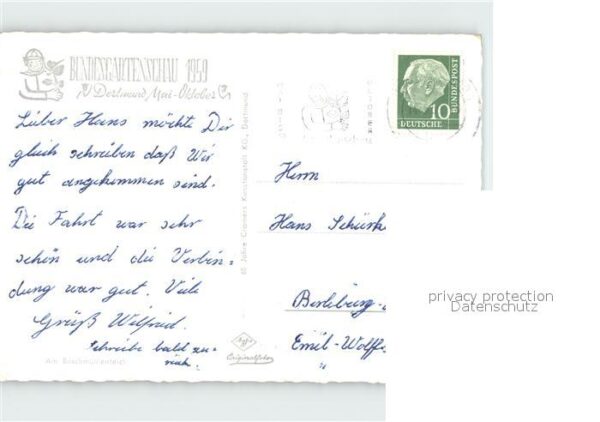 BUNDESGARTENSCHAU 1959
Dortmund Mai-Oktober
Lieber Hans möchte Dir
gleich schreiben daß Wir
gut angekommen sind.
Die Fahrt war sehr
schön und die Verbin-
dung war gut. Viele
Grüß Wilfried.
Schreibe bald zu-
rück.
Am Buschmühlenteich
60 Jahre Cramers Kunstanstalt KG., Dortmund
Agfa
Originalfoto
10
DEUTSCHE
BUNDESPOST
Herrn
Hans Schürk
Berleburg
Emil-Wolff
privacy protection
Datenschutz